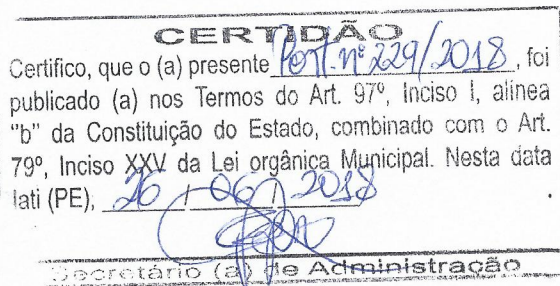 CERTIDÃO
Certifico, que o (a) presente Port. nº 229/2018, foi
publicado (a) nos Termos do Art. 97º, Inciso I, alinea
"b" da Constituição do Estado, combinado com o Art.
79º, Inciso XXV da Lei orgânica Municipal. Nesta data
Iati (PE), 26 / 06 / 2018
Secretário (a) de Administração